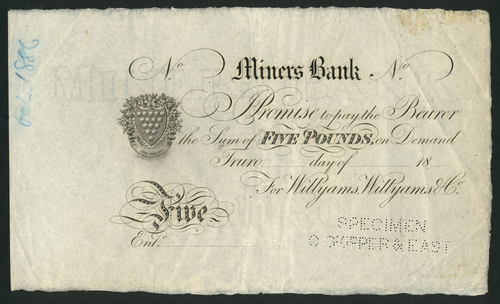 No Miners Bank No
I Promise to pay the Bearer
the Sum of FIVE POUNDS, on Demand
Truro day of 18
For Willyams, Willyams & Co.
Five
Entd.
SPECIMEN